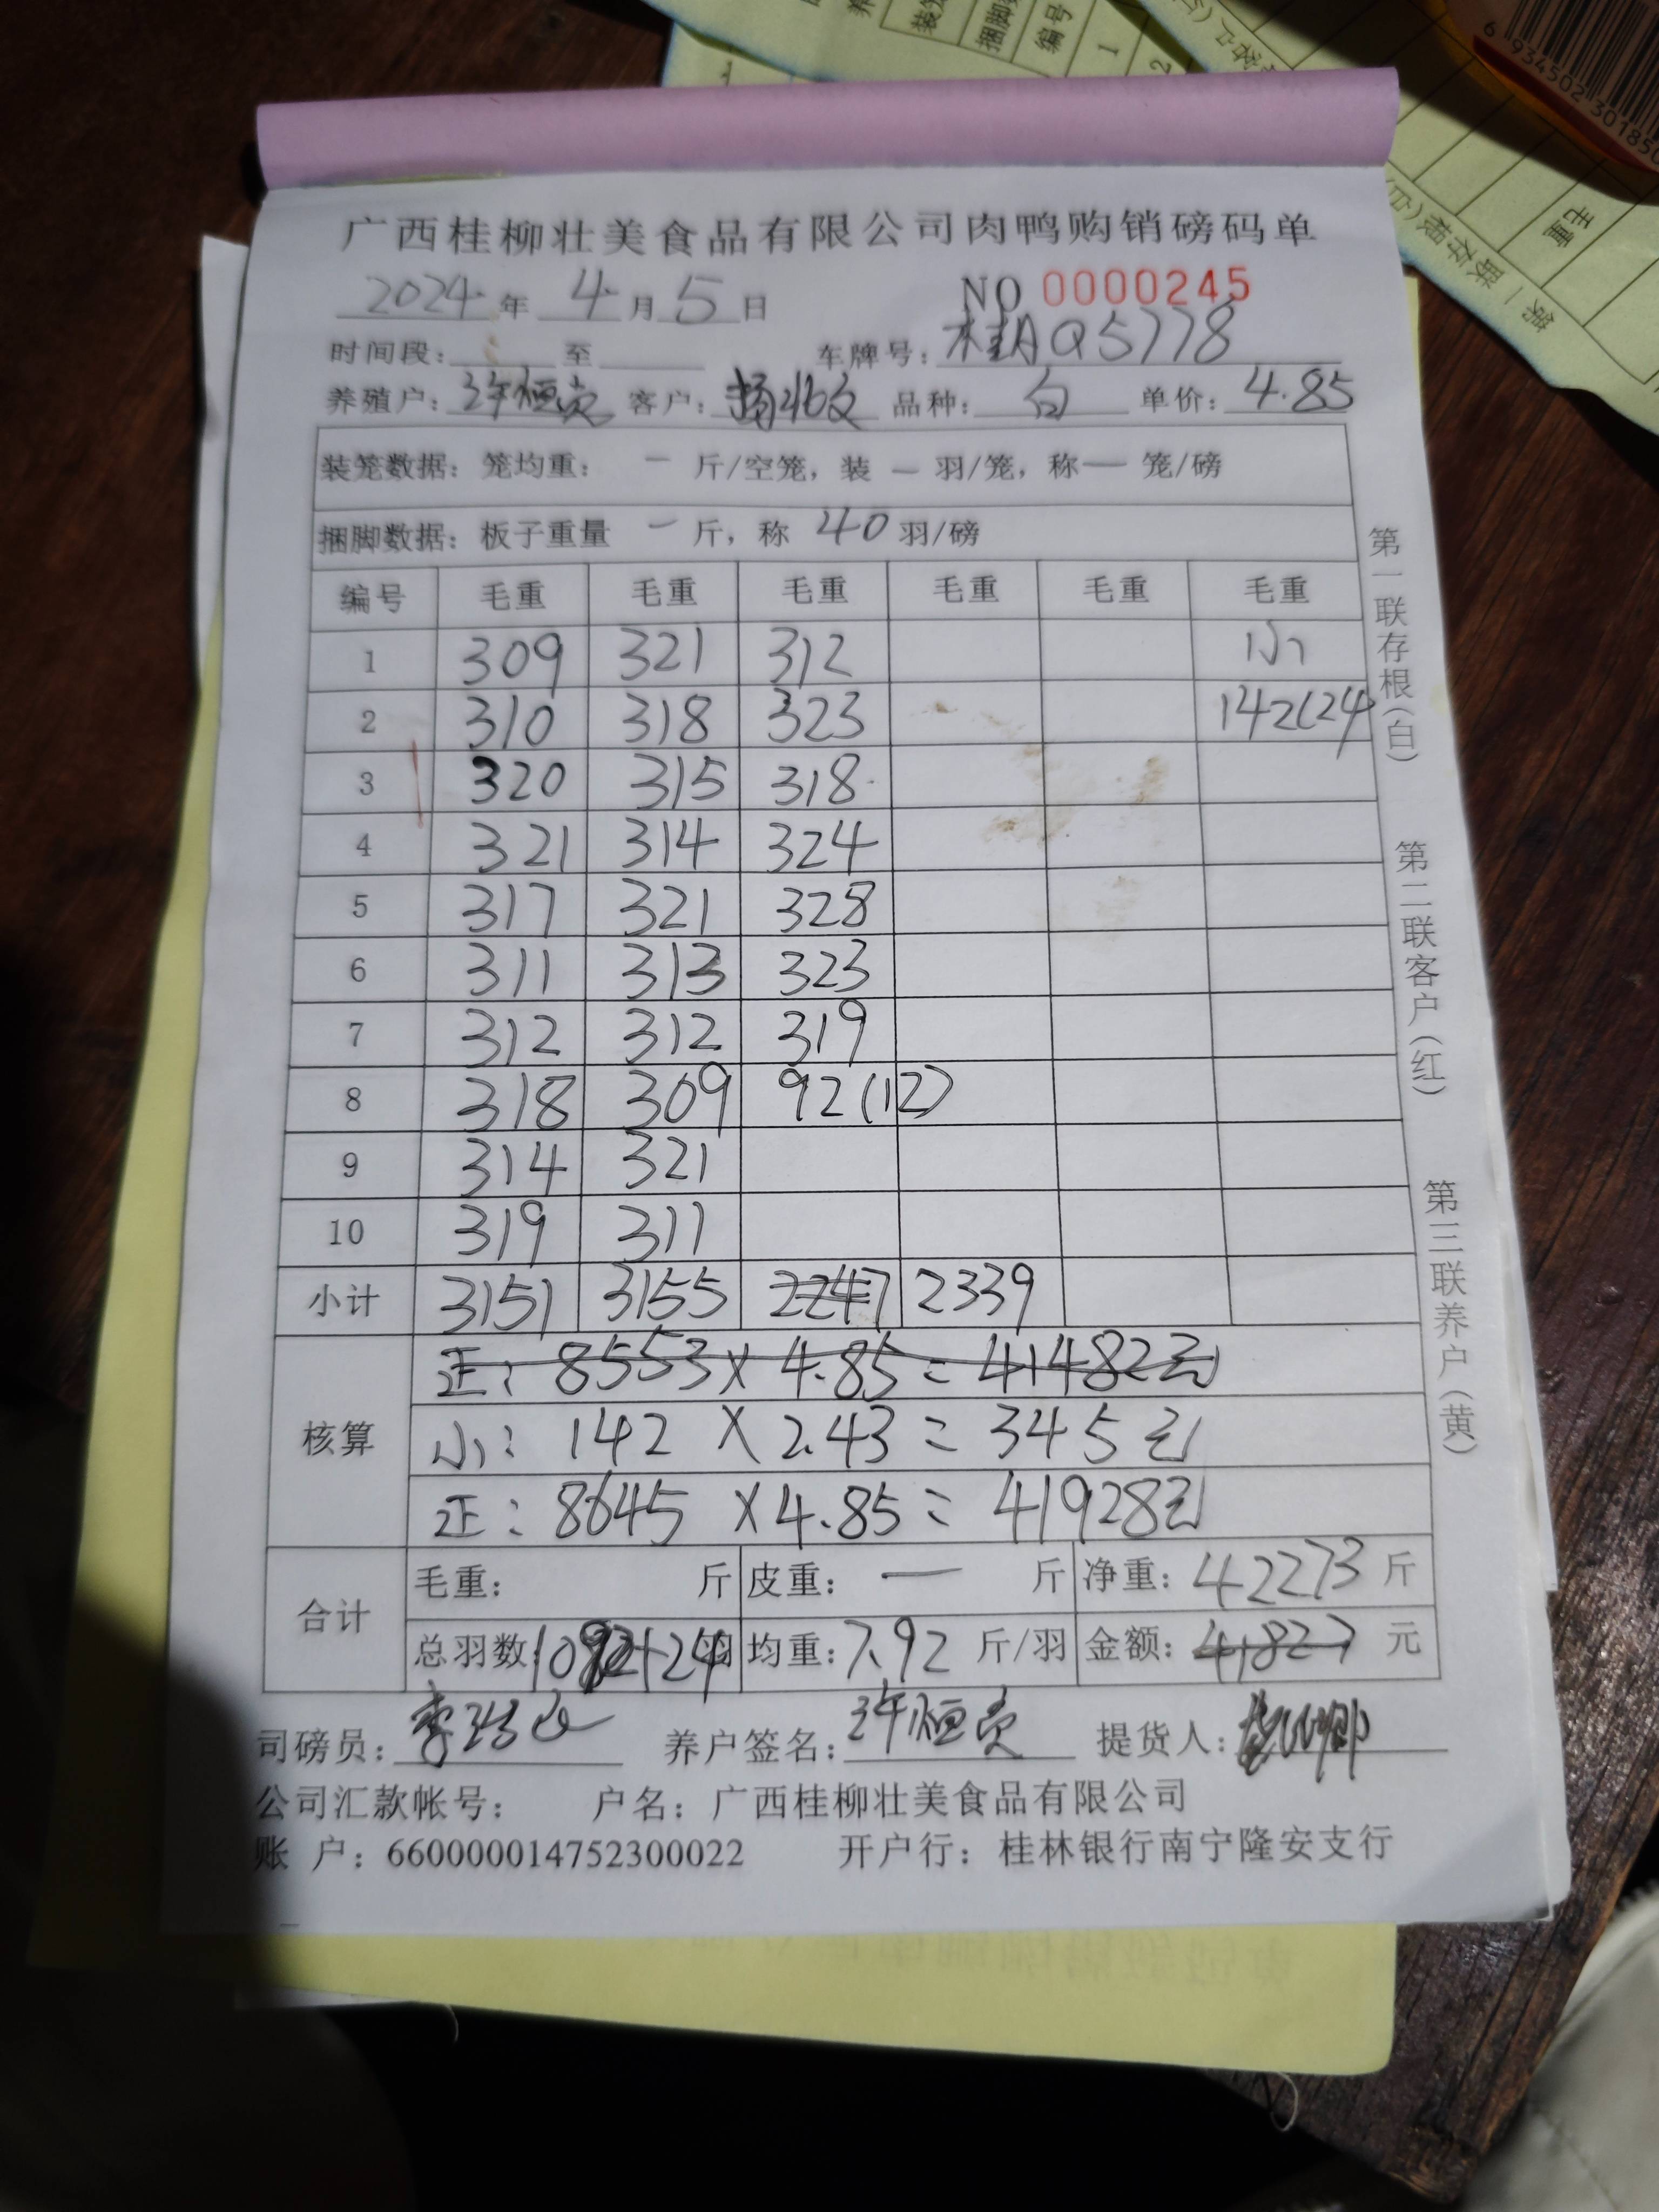 广西桂柳壮美食品有限公司肉鸭购销磅码单
2024年 4月5日 NO 0000245
时间段: 至 车牌号: 桂AQ5778
养殖户: 许恒贵 客户: 品种: 白 单价: 4.85
装笼数据: 笼均重: 一 斤/空笼, 装 一 羽/笼, 称 一 笼/磅
捆脚数据: 板子重量 一 斤, 称 40 羽/磅
编号 毛重 毛重 毛重 毛重 毛重 毛重
1 309 321 312 小
2 310 318 323 142(24
3 320 315 318
4 321 314 324
5 317 321 328
6 311 313 323
7 312 312 319
8 318 309 92(12)
9 314 321
10 319 311
小计 3151 3155 2247 2339
正: 8553×4.85=41482元
核算 小: 142×2.43=345元
正: 8645×4.85=41928元
合计 毛重: 斤 皮重: 一 斤 净重: 42273 斤
总羽数: 羽 均重: 7.92 斤/羽 金额: 41827 元
司磅员: 养户签名: 许恒贵 提货人:
公司汇款帐号: 户名: 广西桂柳壮美食品有限公司
账 户: 660000014752300022 开户行: 桂林银行南宁隆安支行
第一联存根(白)
第二联客户(红)
第三联养户(黄)
装笼
捆脚
编号
1
2
毛重
第一联存根(白)
6 934502 301850